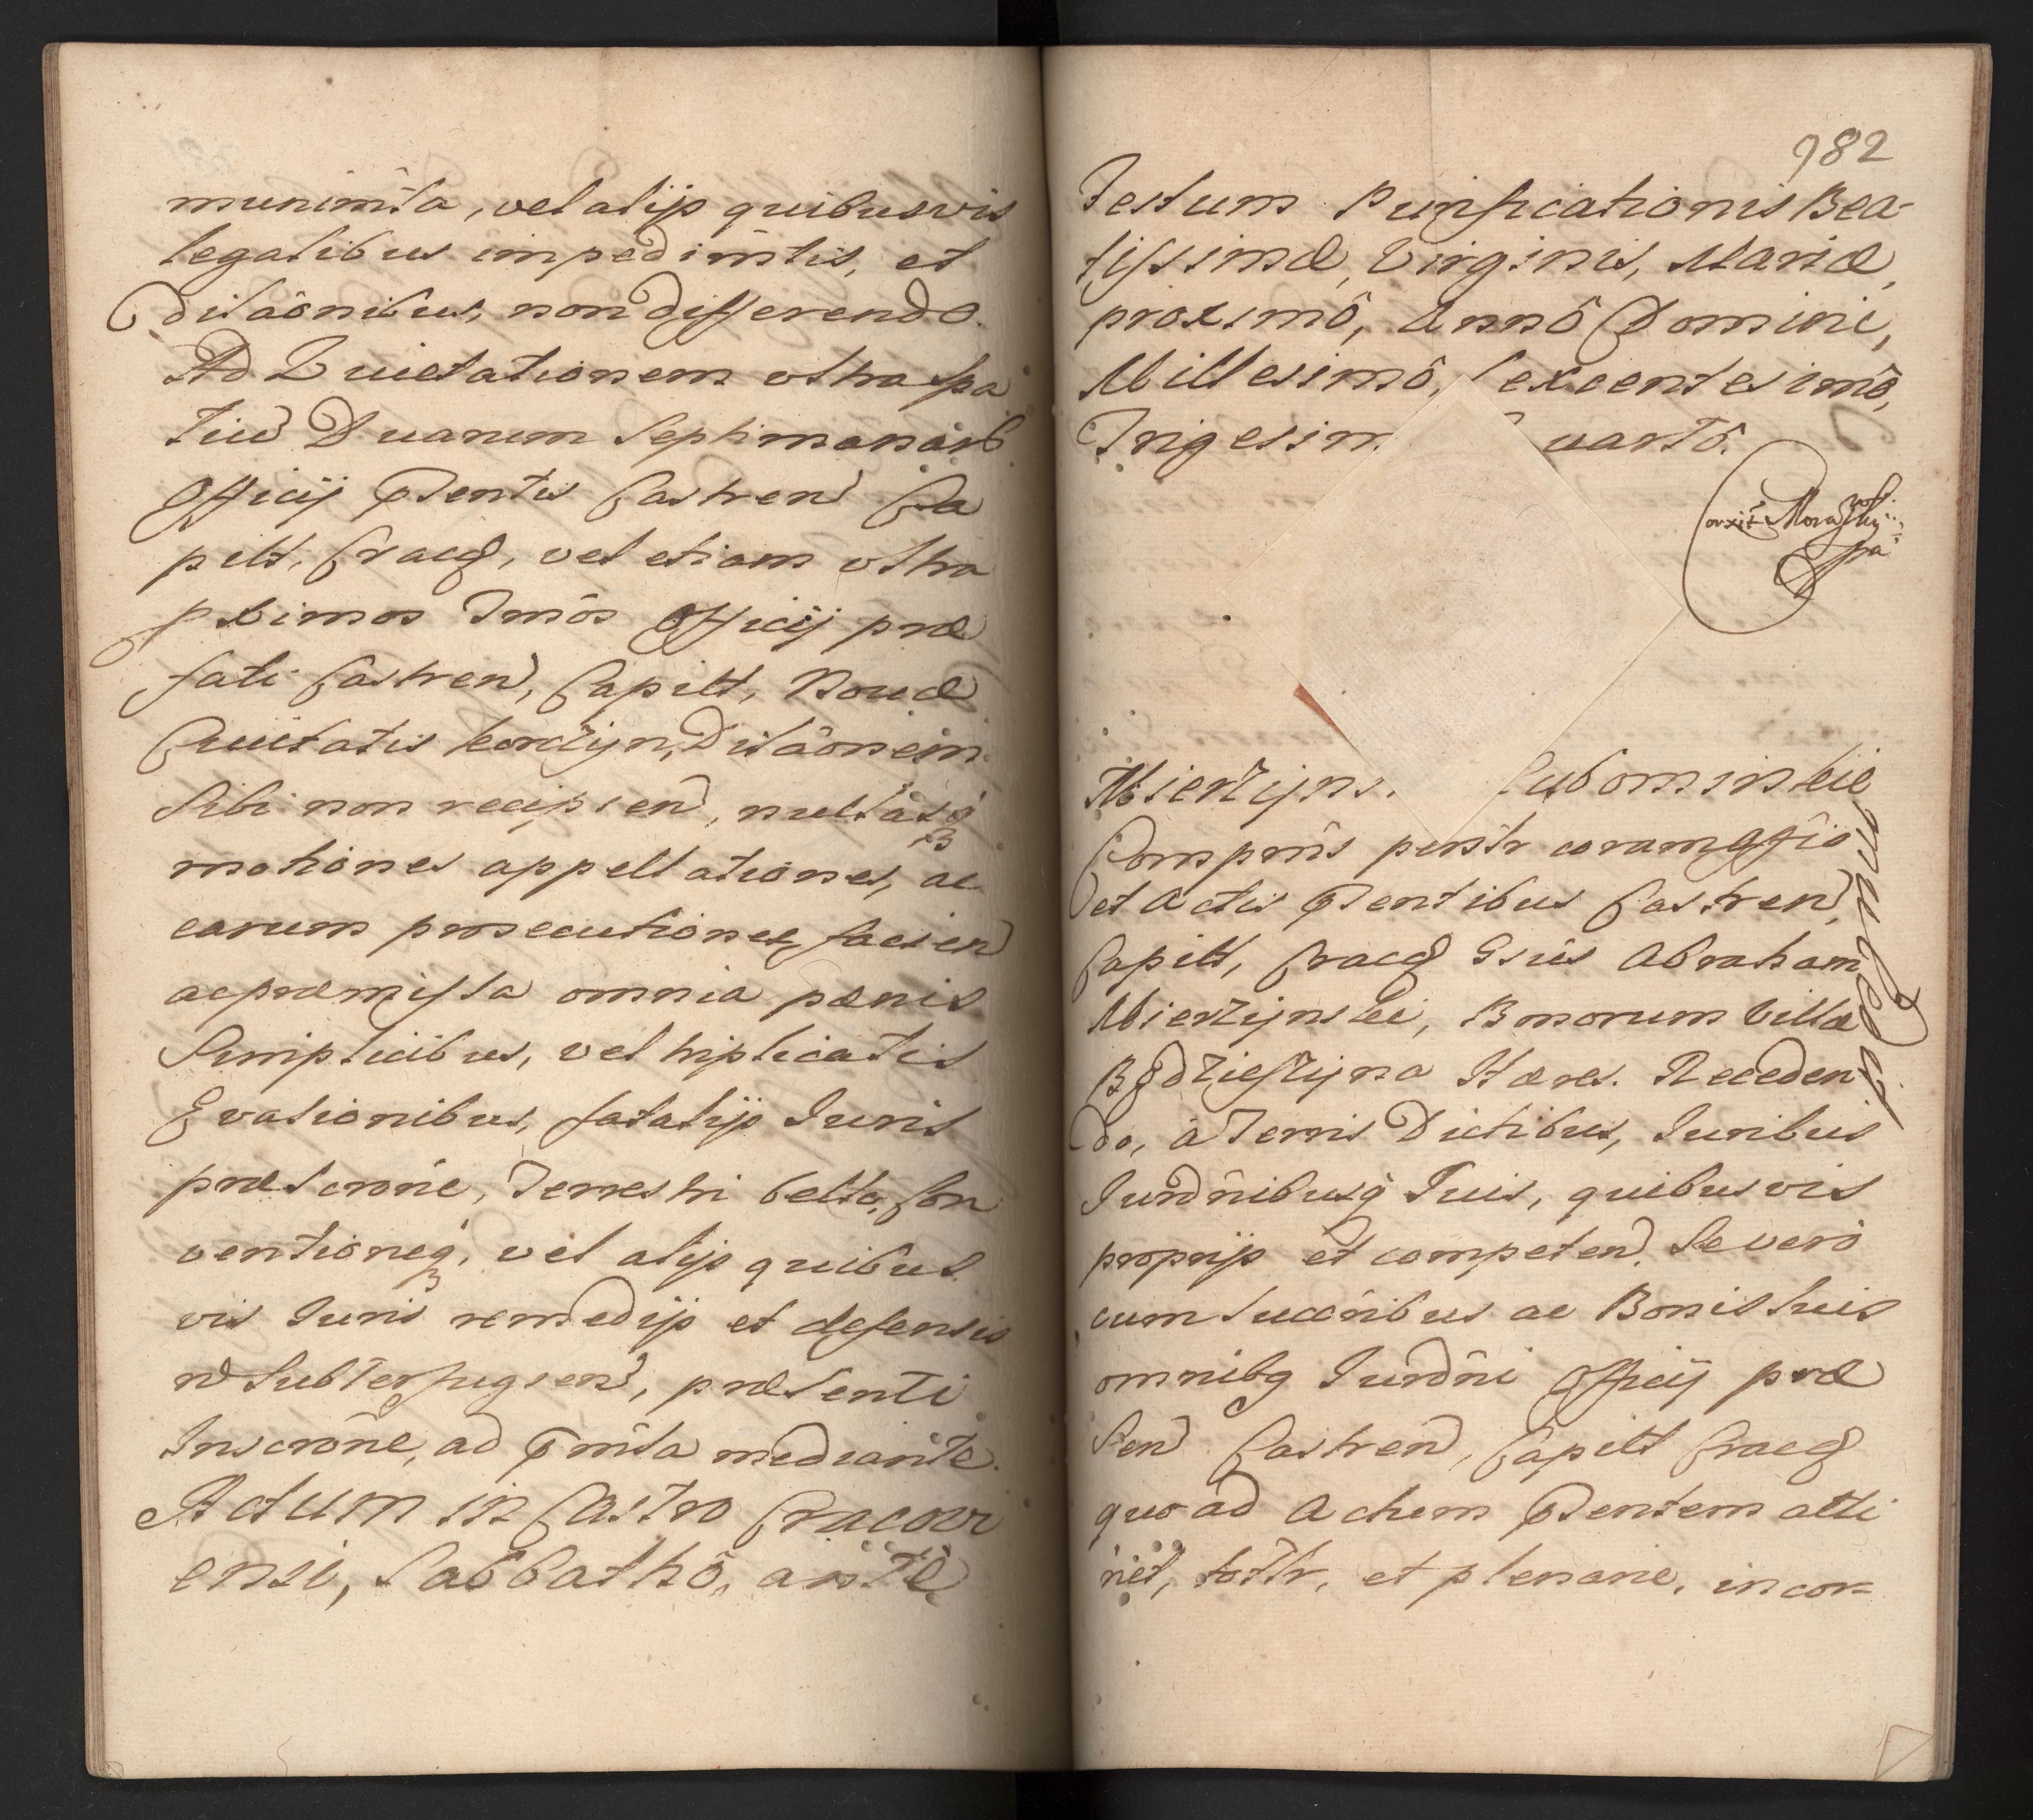 munimta, vel alijs quibusvis
legalibus impedimtis, et
dilâonibus, non differendo.
Ad Quietationem vltra spa
tiu Duarum Septimanarũ
Officij Pntis Castren Ca
pilt, Crac, vel etiam vltra
pximos Tmôs Officij præ
fati Castren, Capilt, Nouæ
Ciuitatis Korczyn, Dilâonem
Sibi non recipien, nullasq
motiones appellationes, ac
earum prosecutiones, facien
ac præmissa omnia pænis
Simplicibus, vel triplicatis
Evasionibus, fatalijs Iuris
præscrone, Terrestri bello, Con
ventioneq, vel alijs quibus
vis Iuris remedijs et defensis
n Subterfugien, præsenti
Inscrone, ad pmsa mediante.
Actum in Castro Cracovi
ensi, Sabbathô, ante
982
Festum Purificationis Bea-
tissimæ, Virginis, Mariæ,
proximô, Annô Domini,
Millesimô, Sexcentesimô,
Trigesim uartô.
Mierzyns. Lubominskie
Comprns psnlr coram Offio
et Actis Pntibus Castren,
Capilt, Crac Gsus Abraham
Mierzynski, Bnorum Villæ
Hæres. Receden
do, a Terris Dictibus, Iuribus
Iurdnibusq Suis, quibusvis
proprijs et competen. Se vero
cum Succribus ac Bonis Suis
omnibq Iurdni Officij præ
sen Castren, Capilt Crac
quo ad Actum Pntem atti
net, totlr, et plenarie, incor-